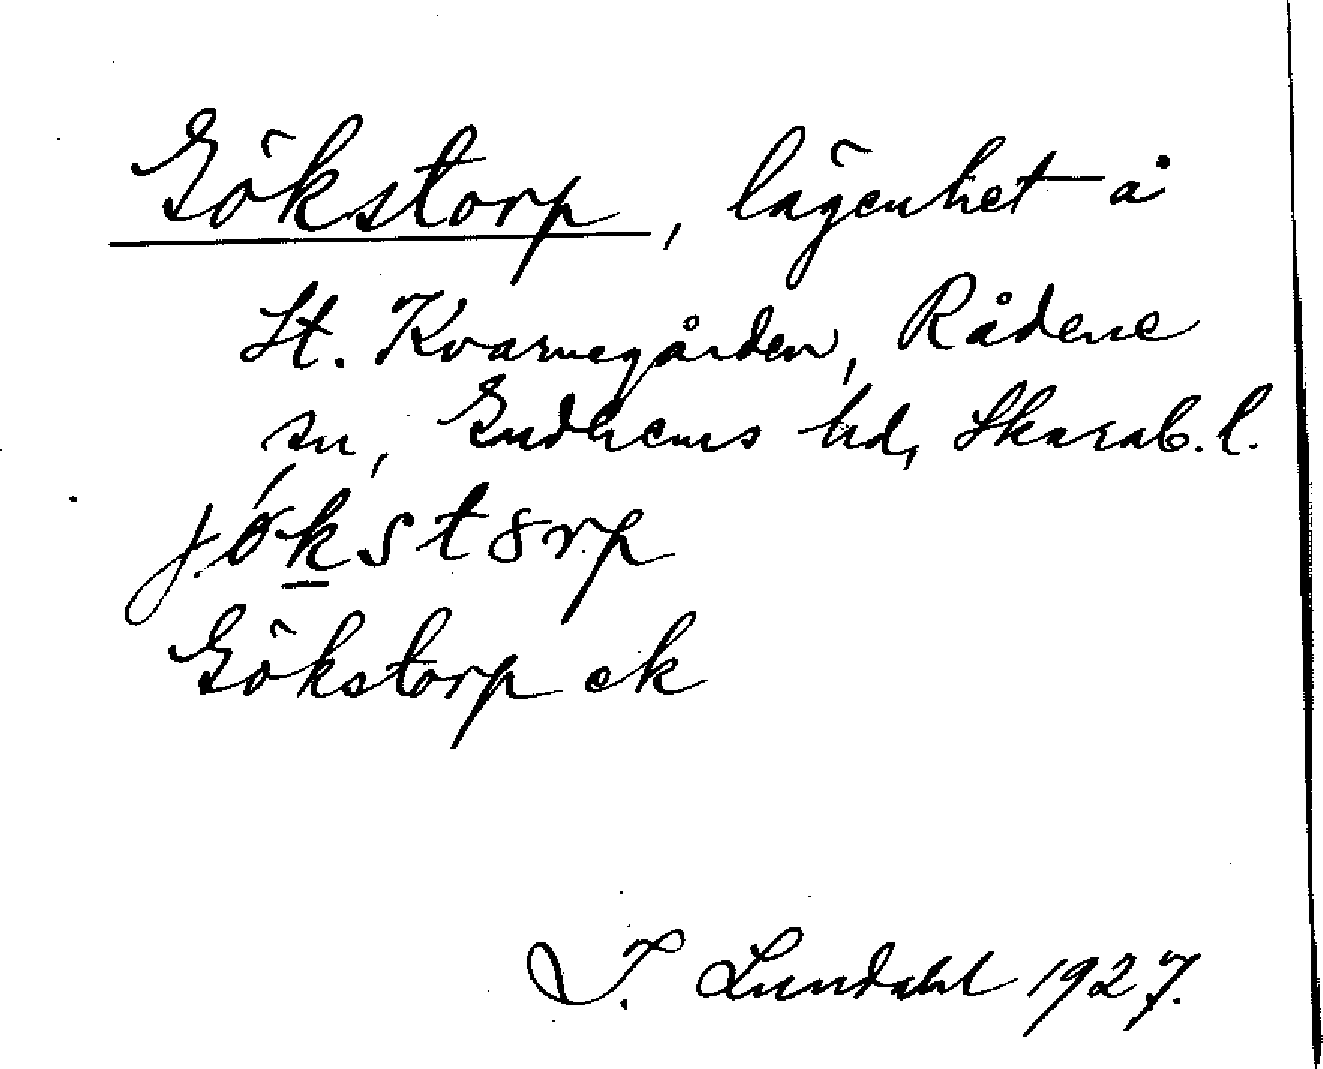 Gökstorp, lägenhet å
St. Kvarnegården, Rådene
sn, Gudhems hd, Skarab. l.
jökstorp
Gökstorp ek
I. Lundahl 1927.